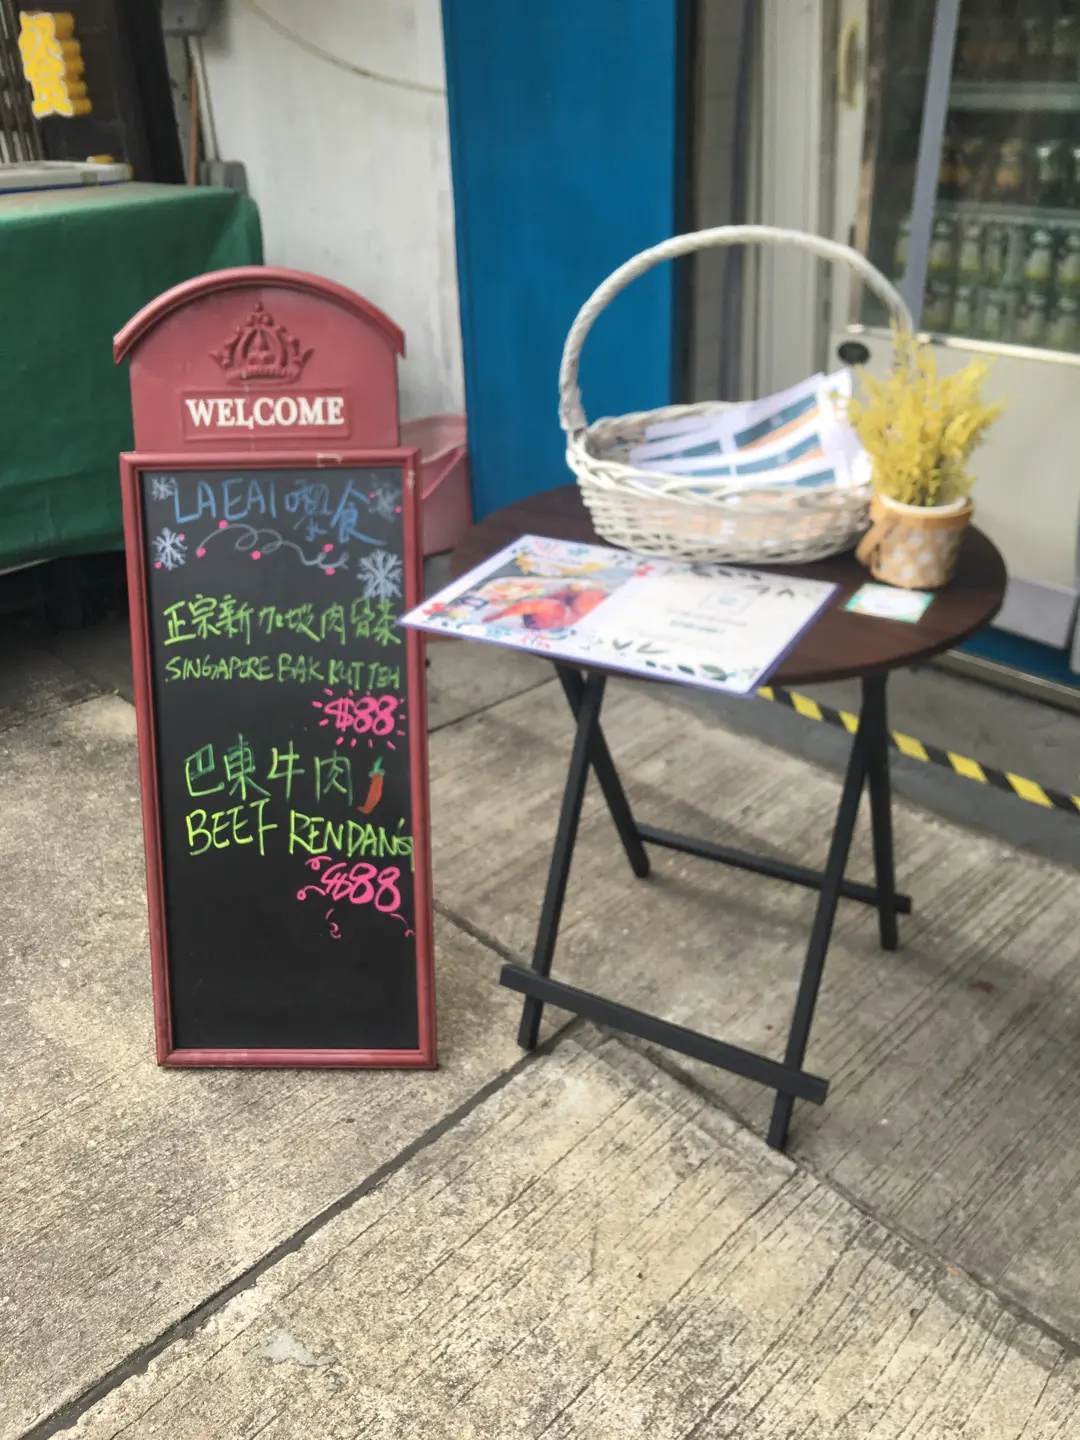 WELCOME
LAEAT 嚟食
正宗新加坡肉骨茶
SINGAPORE BAK KUT TEH
$88
巴東牛肉
BEEF RENDANG
$88